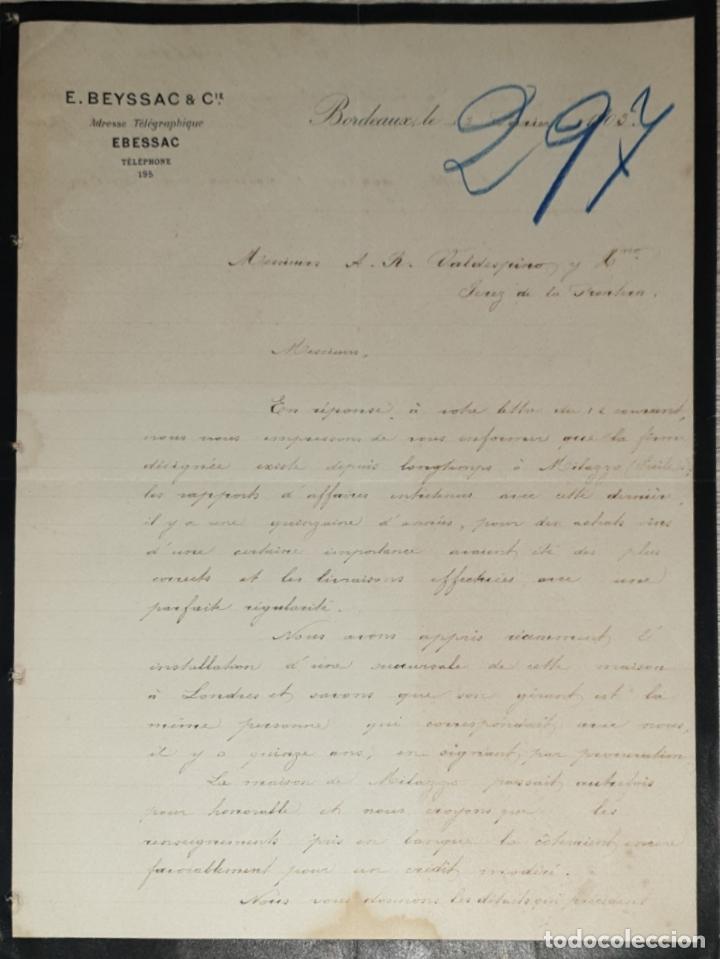 E. BEYSSAC & Cie
Adresse Télégraphique
EBESSAC
TÉLÉPHONE
195
Bordeaux, le 1903
297
Messieurs A. R. Valdespino y Hno
Jerez de la Frontera.
Messieurs,
En réponse, à votre lettre du 12 courant,
nous nous empressons de vous informer que la firme
désignée existe depuis longtemps à Milazzo (Sicile);
les rapports d'affaires entretenus avec cette dernière,
il y a une quinzaine d'années, pour des achats vins
d'une certaine importance avaient été des plus
corrects et les livraisons effectuées avec une
parfaite régularité.
Nous avons appris récemment l'
installation d'une succursale de cette maison
à Londres et savons que son gérant est la
même personne qui correspondait avec nous,
il y a quinze ans, en signant par procuration
La maison de Milazzo passait autrefois
pour honorable et nous croyons que les
renseignements pris en banque la côteraient encore
favorablement pour un crédit modéré.
Nous vous donnons les détails qui précèdent
todocoleccion.net